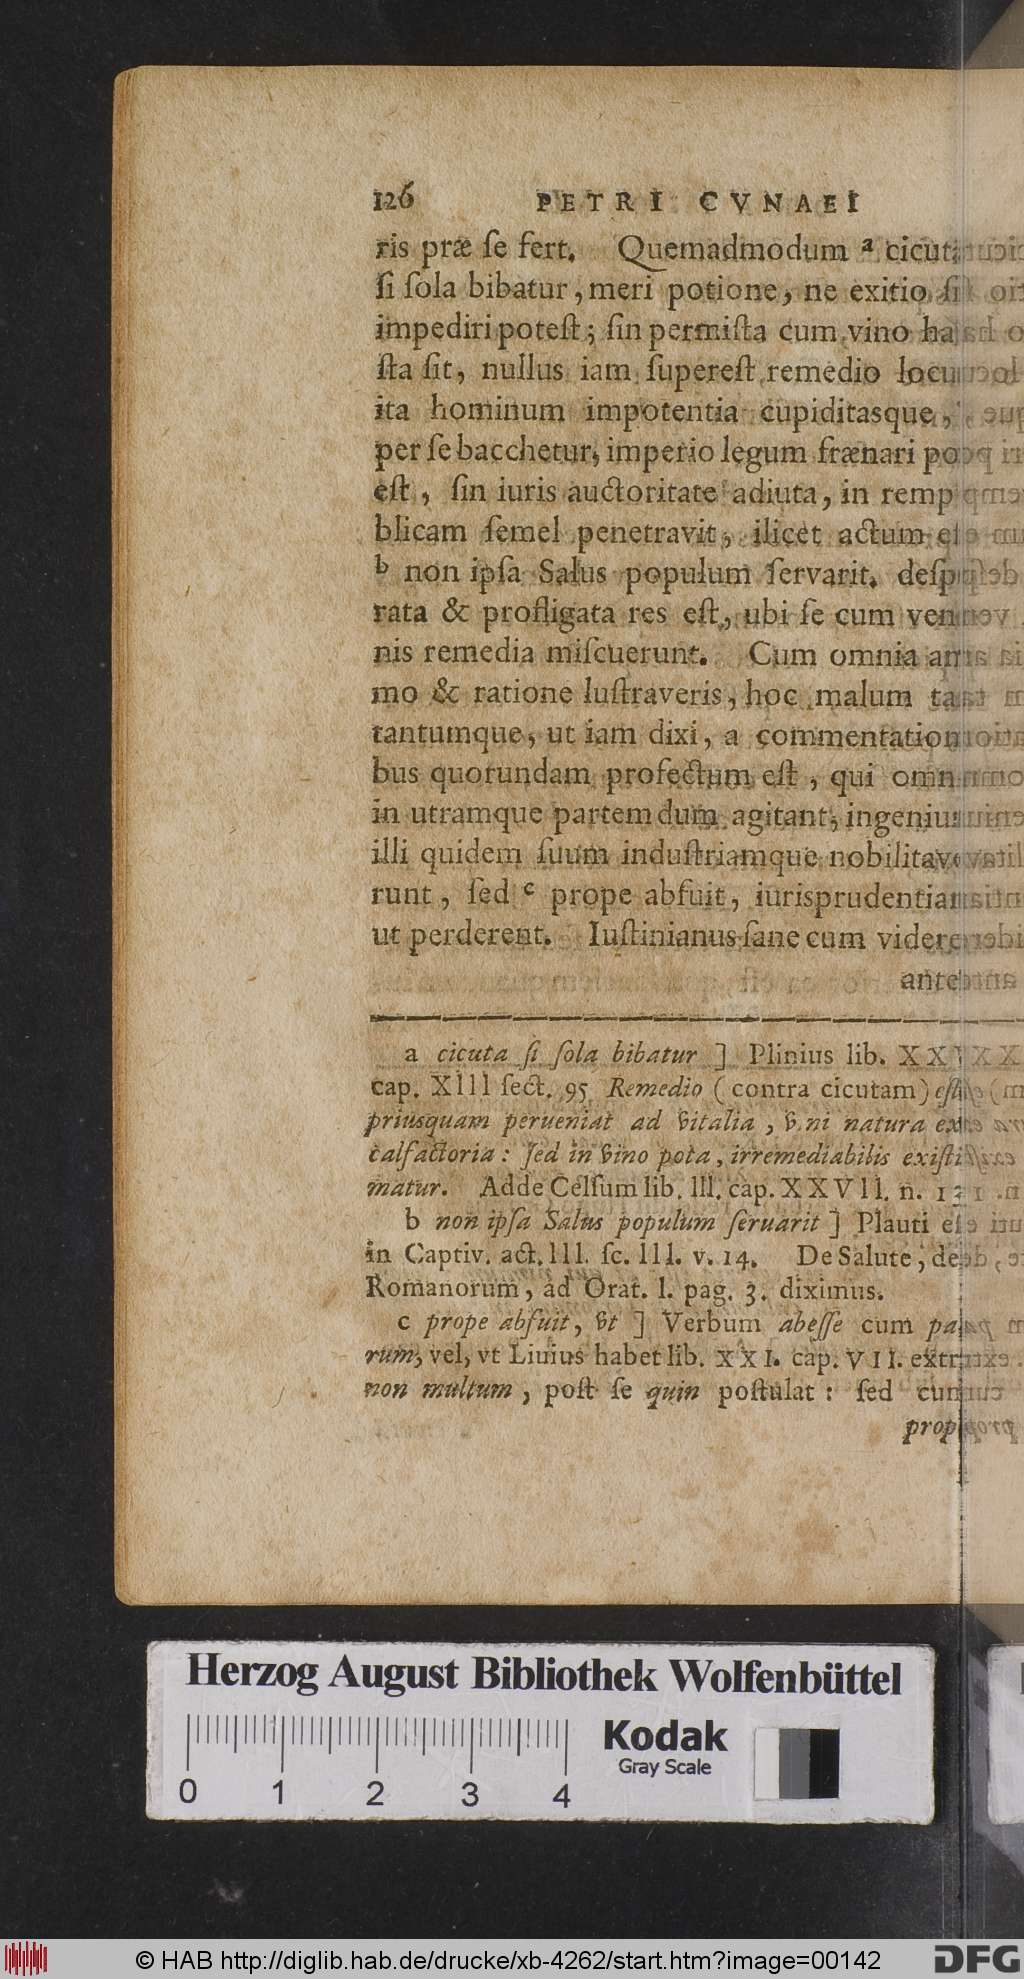 126 PETRI CVNAEI
ris præ ſe fert. Quemadmodum a cicut
ſi ſola bibatur, meri potione, ne exitio ſi
impediri poteſt; ſin permiſta cum vino ha
ſta ſit, nullus iam ſupereſt remedio locu
ita hominum impotentia cupiditasque,
per ſe bacchetur, imperio legum frænari po
eſt, ſin iuris auctoritate adiuta, in remp
blicam ſemel penetravit, ilicet actum e
b non ipſa Salus populum ſervarit. deſp
rata & profligata res eſt, ubi ſe cum ven
nis remedia miſcuerunt. Cum omnia an
mo & ratione luſtraveris, hoc malum ta
tantumque, ut iam dixi, a commentation
bus quorundam profectum eſt, qui omn
in utramque partem dum agitant, ingeniu
illi quidem ſuum induſtriamque nobilitav
runt, ſed c prope abfuit, iurisprudentiam
ut perderent. Iuſtinianus ſane cum videre
ante
a cicuta ſi ſola bibatur ] Plinius lib. XX
cap. XIII ſect. 95 Remedio (contra cicutam) eſt
priusquam perueniat ad vitalia, v. ni natura ex
calfactoria: ſed in vino pota, irremediabilis exiſti
matur. Adde Celſum lib. III. cap. XXVII. n. 121
b non ipſa Salus populum ſeruarit ] Plauti e
in Captiv. act. III. ſc. III. v. 14. De Salute, de
Romanorum, ad Orat. I. pag. 3. diximus.
c prope abfuit, vt ] Verbum abeſſe cum pa
rum, vel, vt Liuius habet lib. XXI. cap. VII. extr
non multum, poſt ſe quin poſtulat: ſed cum
prop
Herzog August Bibliothek Wolfenbüttel
Kodak
Gray Scale
0 1 2 3 4
© HAB http://diglib.hab.de/drucke/xb-4262/start.htm?image=00142
DFG